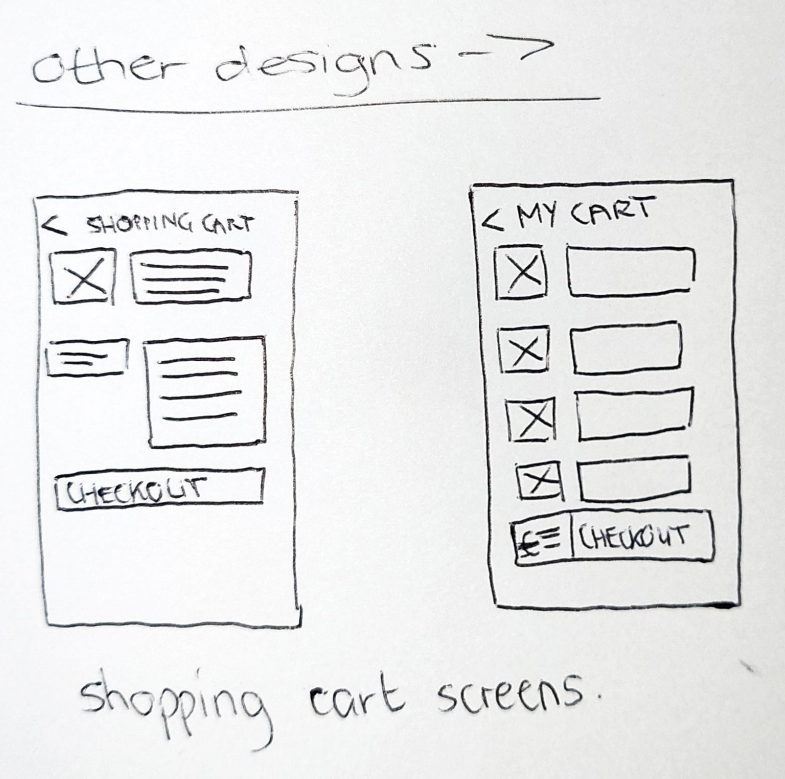 other designs -->
< SHOPPING CART
CHECKOUT
< MY CART
£ CHECKOUT
shopping cart screens.